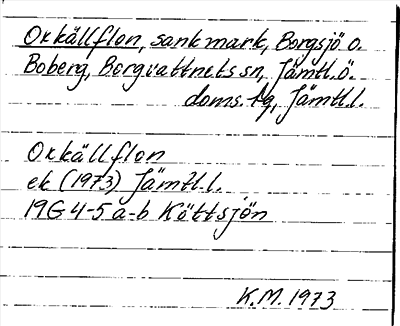 Orkällflon, sank mark, Borgsjö o.
Boberg, Borgvattnets sn, Jämtl.ö.
doms. tg, Jämtl.l.
Orkällflon
ek (1973) Jämtl.l.
19G 4-5 a-b Köttsjön
K.M. 1973